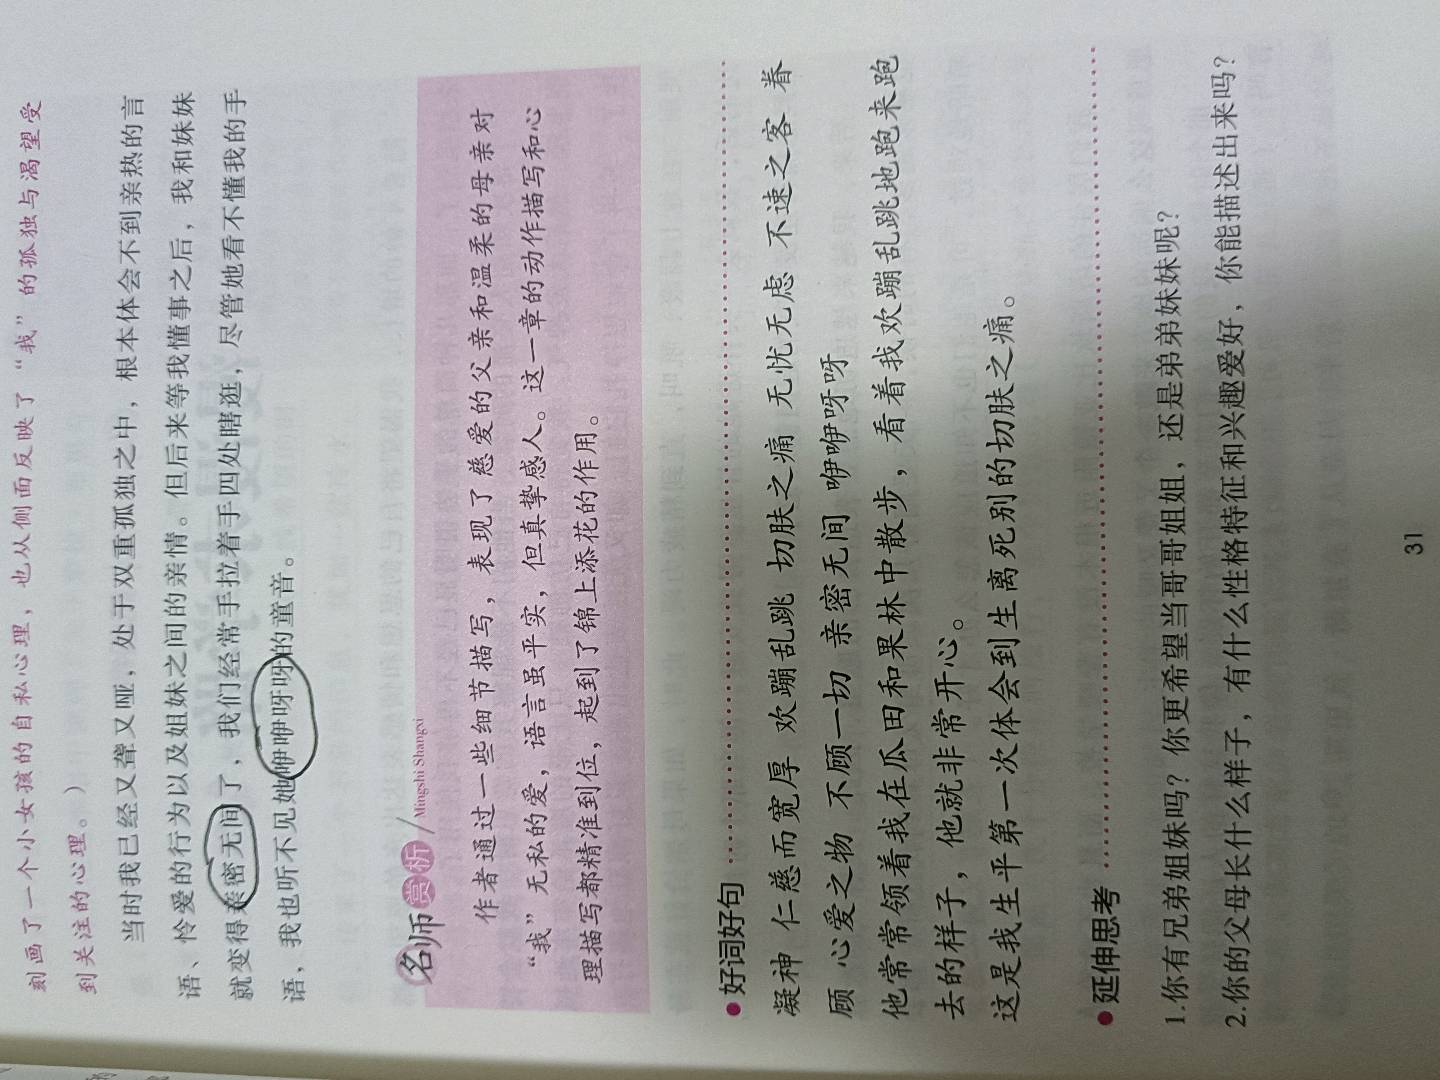 刻画了一个小女孩的自私心理，也从侧面反映了“我”的孤独与渴望受
到关注的心理。）
当时我已经又聋又哑，处于双重孤独之中，根本体会不到亲热的言
语、怜爱的行为以及姐妹之间的亲情。但后来等我懂事之后，我和妹妹
就变得亲密无间了，我们经常手拉着手四处瞎逛，尽管她看不懂我的手
语，我也听不见她咿咿呀呀的童音。
名师赏析 / Mingshi Shangxi
作者通过一些细节描写，表现了慈爱的父亲和温柔的母亲对
“我”无私的爱，语言虽平实，但真挚感人。这一章的动作描写和心
理描写都精准到位，起到了锦上添花的作用。
●好词好句
凝神 仁慈而宽厚 欢蹦乱跳 切肤之痛 无忧无虑 不速之客 眷
顾 心爱之物 不顾一切 亲密无间 咿咿呀呀
他常常领着我在瓜田和果林中散步，看着我欢蹦乱跳地跑来跑
去的样子，他就非常开心。
这是我生平第一次体会到生离死别的切肤之痛。
●延伸思考
1.你有兄弟姐妹吗？你更希望当哥哥姐姐，还是弟弟妹妹呢？
2.你的父母长什么样子，有什么性格特征和兴趣爱好，你能描述出来吗？
31